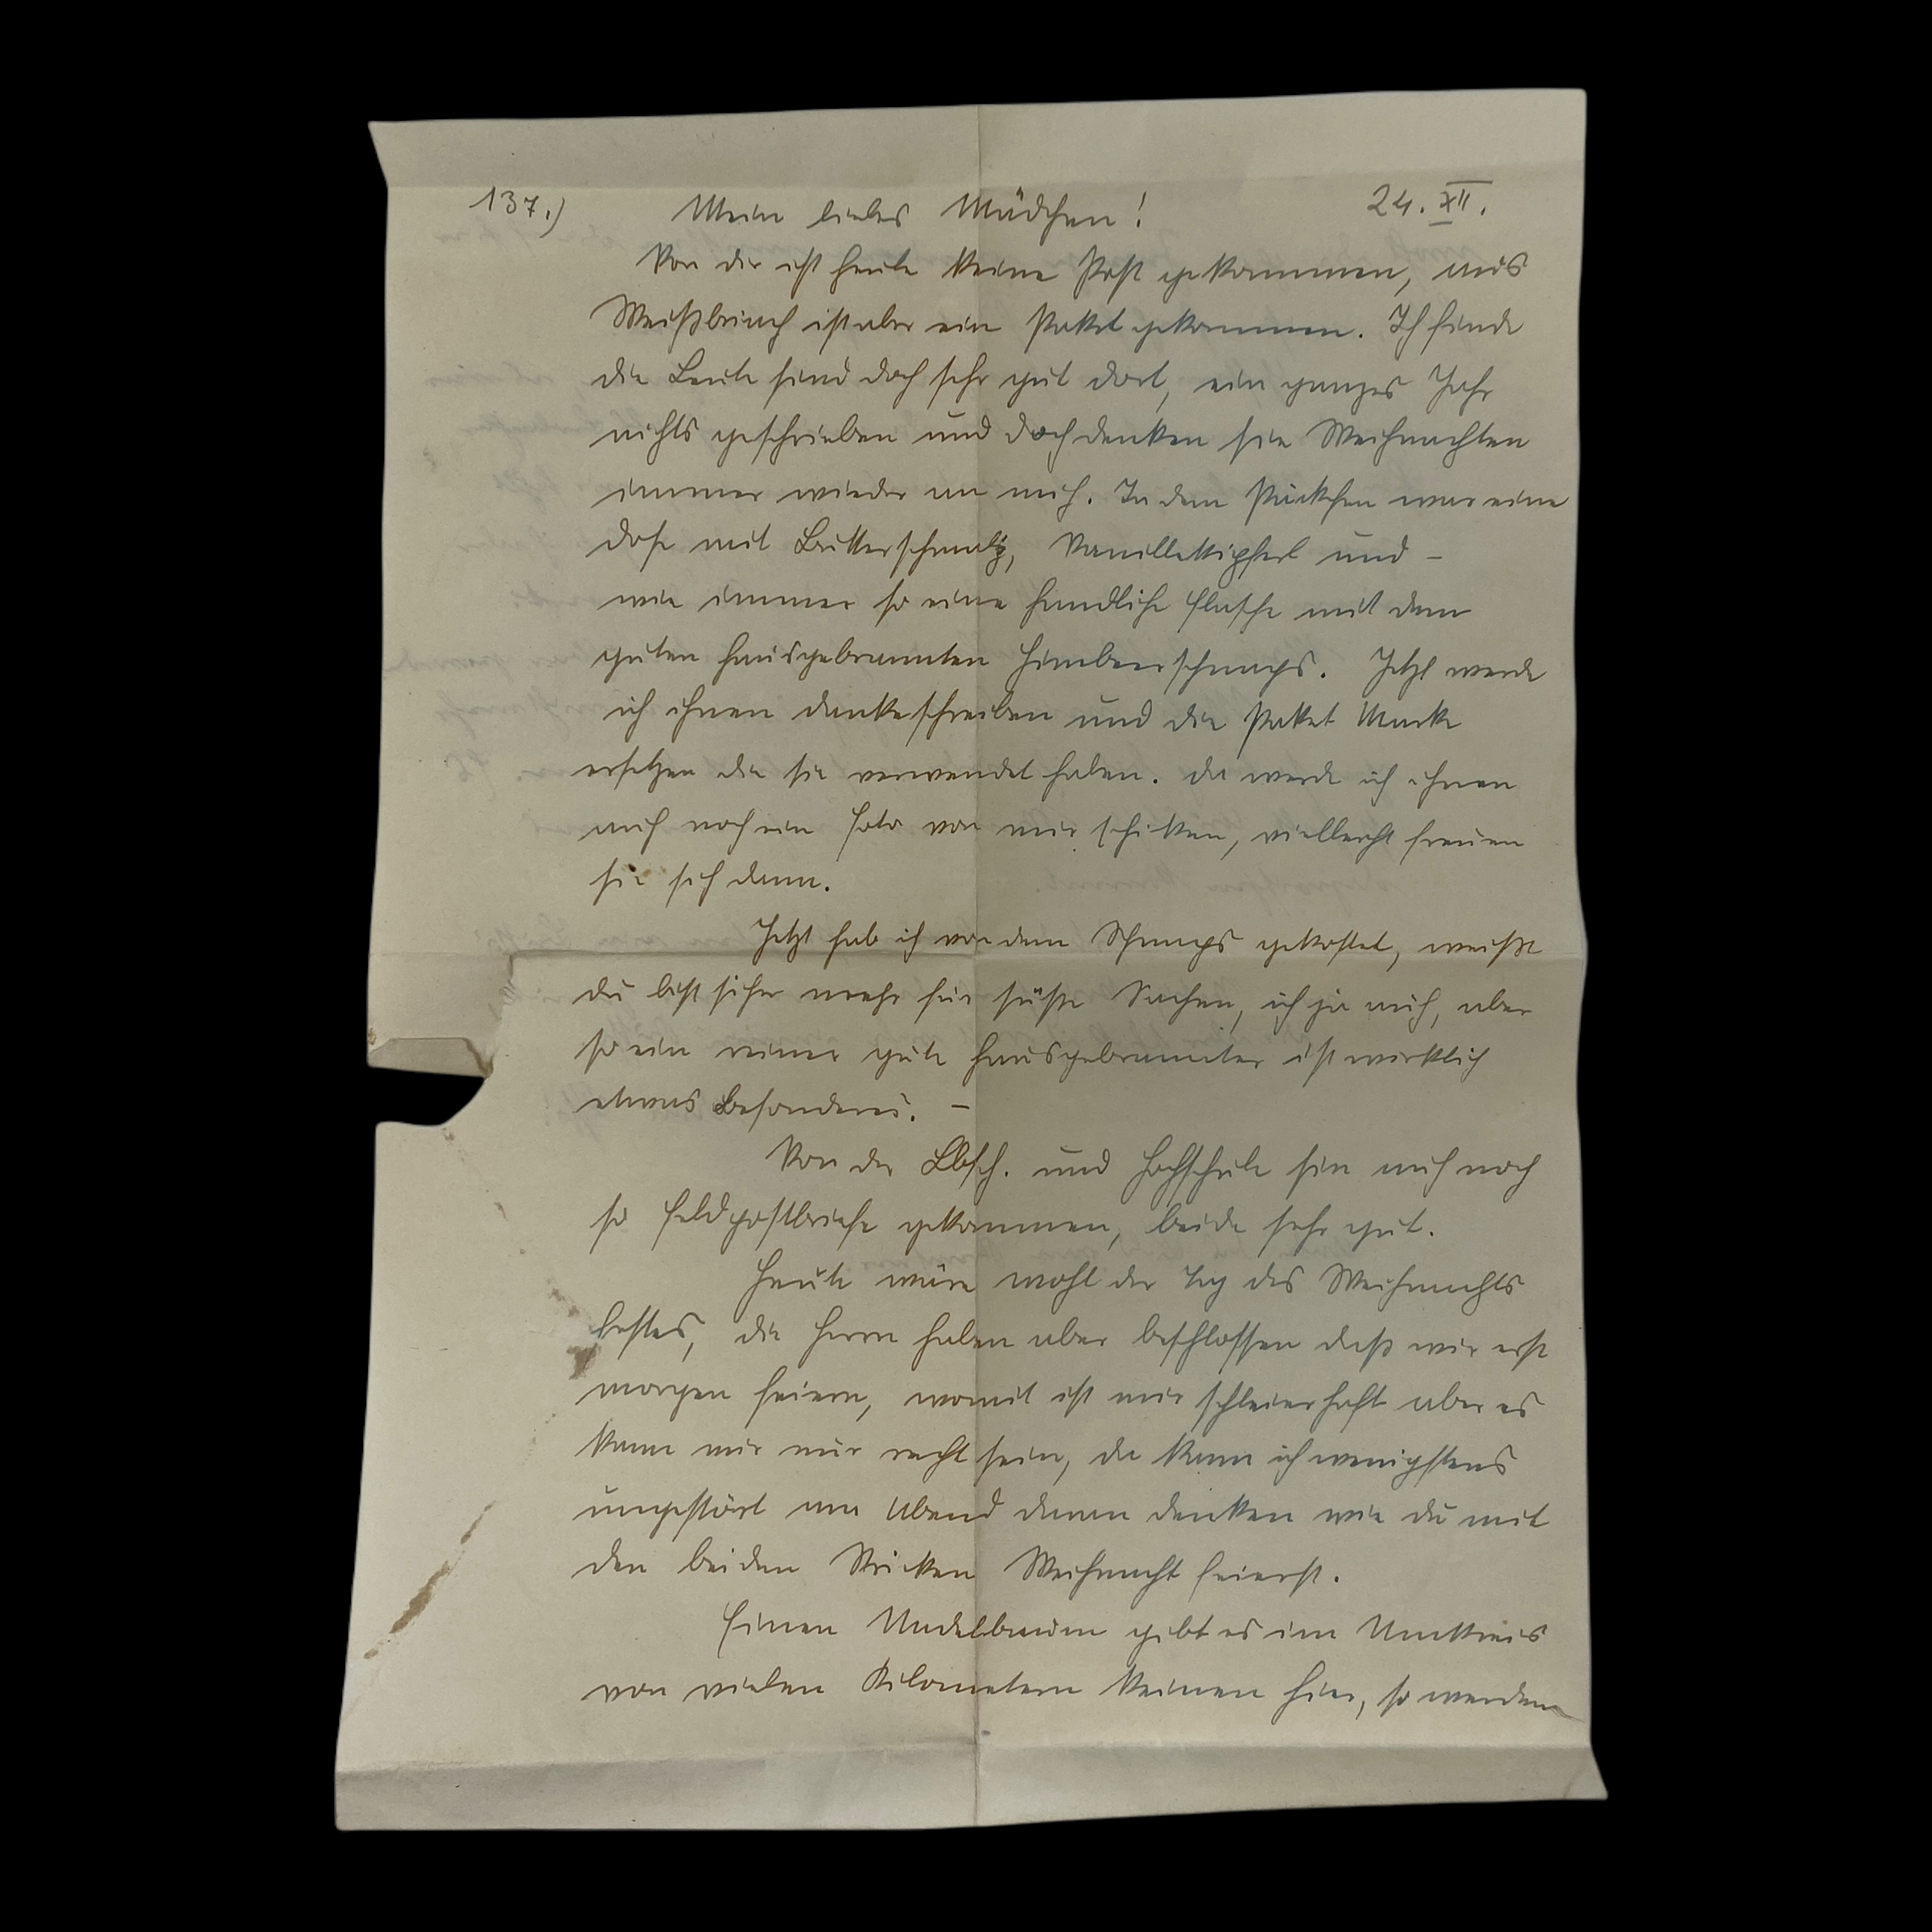 137.) Mein liebes Mädchen! 24. XII.
Von dir ist heute keine Post gekommen, aus
Weißbriach ist aber ein Paket gekommen. Ich finde
die Leute sind doch sehr gut dort, ein ganzes Jahr
nichts geschrieben und doch denken sie Weihnachten
immer wieder an mich. In dem Päckchen war eine
Dose mit Butterschmalz, Vanillekipferl und –
wie immer so eine handliche Flasche mit dem
guten hausgebrannten Himbeerschnaps. Jetzt werde
ich ihnen dankeschreiben und die Paket Marke
ersetzen die sie verwendet haben. Da werde ich ihnen
auch noch ein Foto von mir schicken, vielleicht freuen
sie sich dann.
Jetzt hab ich von dem Schnaps gekostet, weißt
du bist sicher mehr für süße Sachen, ich ja auch, aber
so ein reiner gute hausgebrannter ist wirklich
etwas Besonderes. –
Von der und Hochschule sin auch noch
so Feldpostbriefe gekommen, beide sehr gut.
Heute wäre wohl der Tag des Weihnachts
festes, die Herrn haben aber beschlossen daß wir erst
morgen feiern, womit ist mir schleierhaft aber es
kann mir nur recht sein, da kann ich wenigstens
ungestört am Abend daran denken wie du mit
den beiden Weihnacht feierst.
Einen Nadelbaum gibt es im Umkreis
von vielen Kilometern keinen hier, so werden